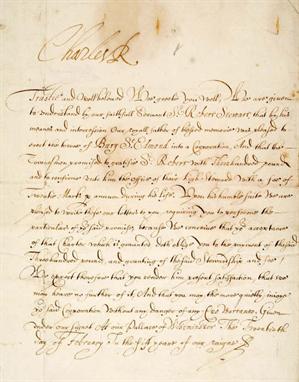 Charles R
Trustie and Welbeloved We greete you well, We are given
to understand by our faithfull Servant Sr. Robert Stewart, that by his
meanes and intercession Our royall father of blessed memorie was pleased to
erect the towne of Bury St. Edmond into a Corporation, And that the
Townesmen promised to gratifie Sr. Robert with Three hundred pounds
and to confirme unto him the office of their high Steward with a fee of
Twentie Marks p annum during his life. Upon his humble suite We are
pleased to write these our letters to you, requiring you to performe the
particulars of yor said promises because We conceive that yor acceptance
of that Charter which is granted doth oblige you to the payment of the said
Three hundred pounds, and granting of the said Stewardship and fee:
We expect therefore that you render him present satisfaction, that we
may heare no further of it, And that you may the more quietly injoye
yor said Corporation Without any danger of any Quo Warranto. Given
under our Signet At our Pallace of Westminster The Twentieth
day of February In the first yeare of our raigne